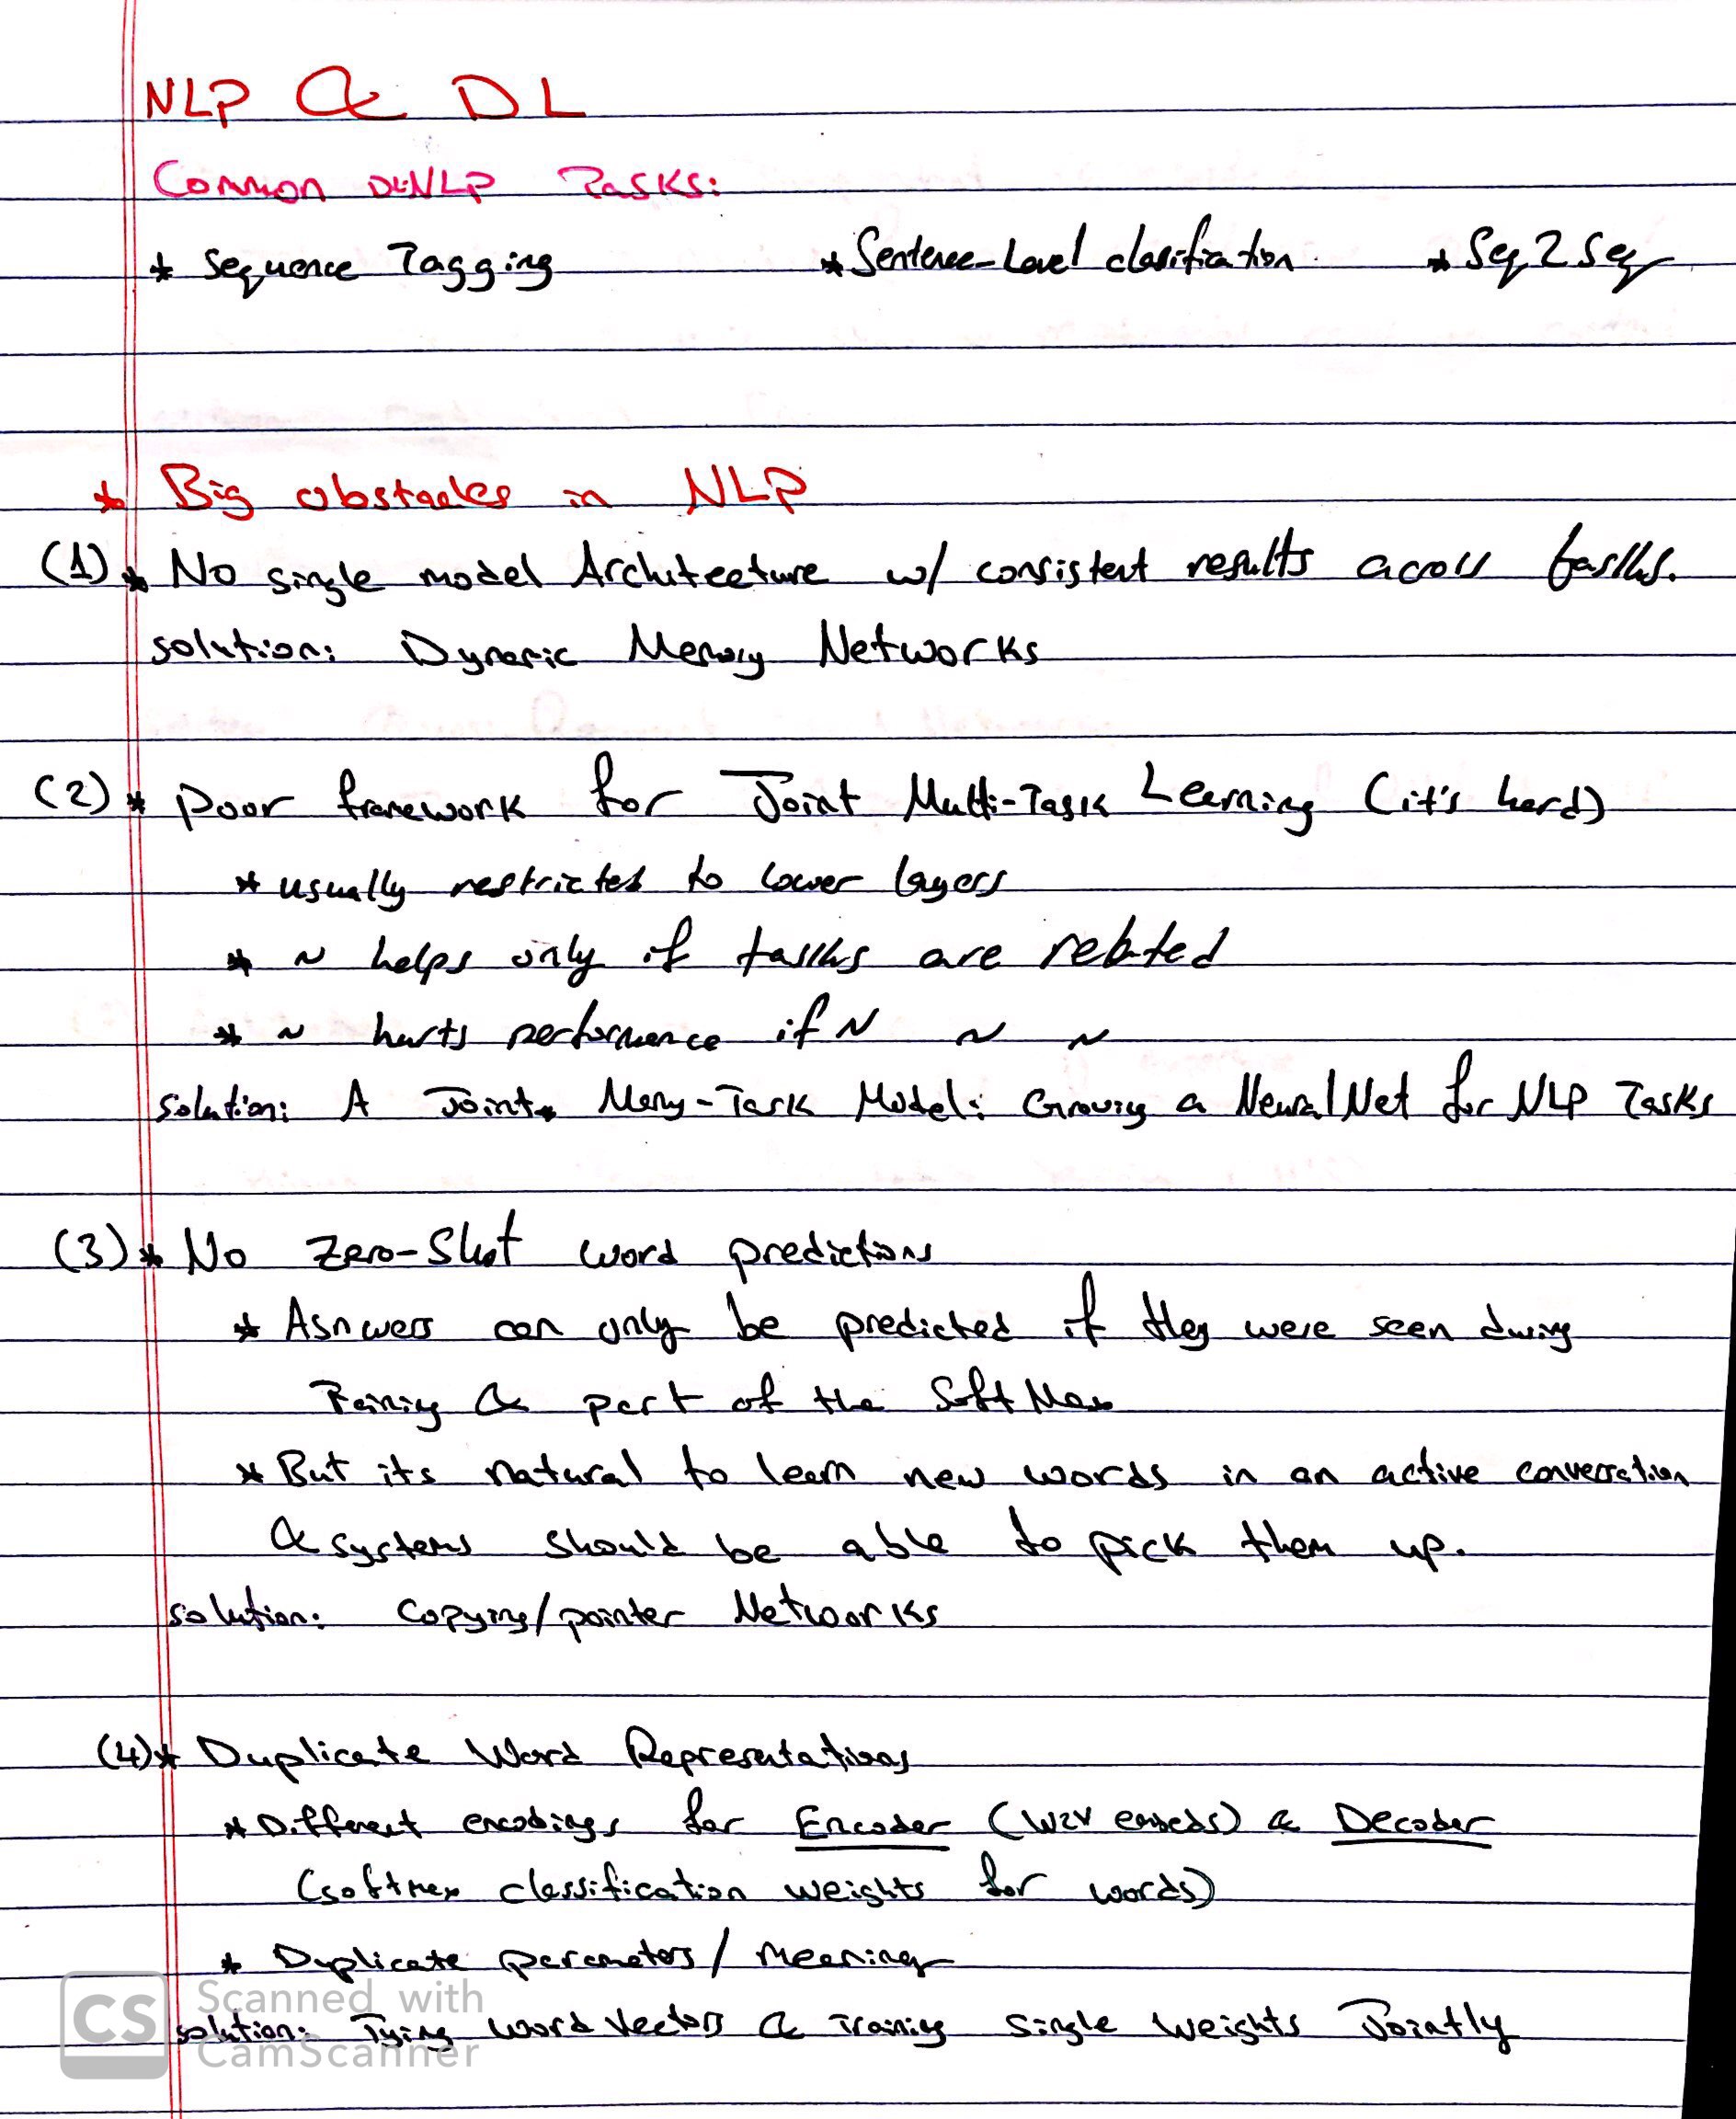 NLP & DL
Common DL-NLP Tasks:
* Sequence Tagging * Sentence-Level clasification * Seq2Seq
* Big obstacles in NLP
(1) * No single model Architecture w/ consistent results across tasks.
solution: Dynamic Memory Networks
(2) * Poor framework for Joint Multi-Task Learning (it's hard)
* usually restricted to lower layers
* ~ helps only if tasks are related
* ~ hurts performance if ~ ~ ~
solution: A Joint Many-Task Model: Growing a Neural Net for NLP Tasks
(3) * No Zero-Shot word predictions
* Asnwers can only be predicted if they were seen during
Training & part of the SoftMax
* But its natural to learn new words in an active conversation
& systems should be able to pick them up.
solution: Copying/pointer Networks
(4) * Duplicate Word Representations
* Different encodings for Encoder (W2V embeds) & Decoder
(softmax classification weights for words)
* Duplicate parameters/meaning
solution: Tying word Vectors & Training single Weights Jointly
CS Scanned with
CamScanner